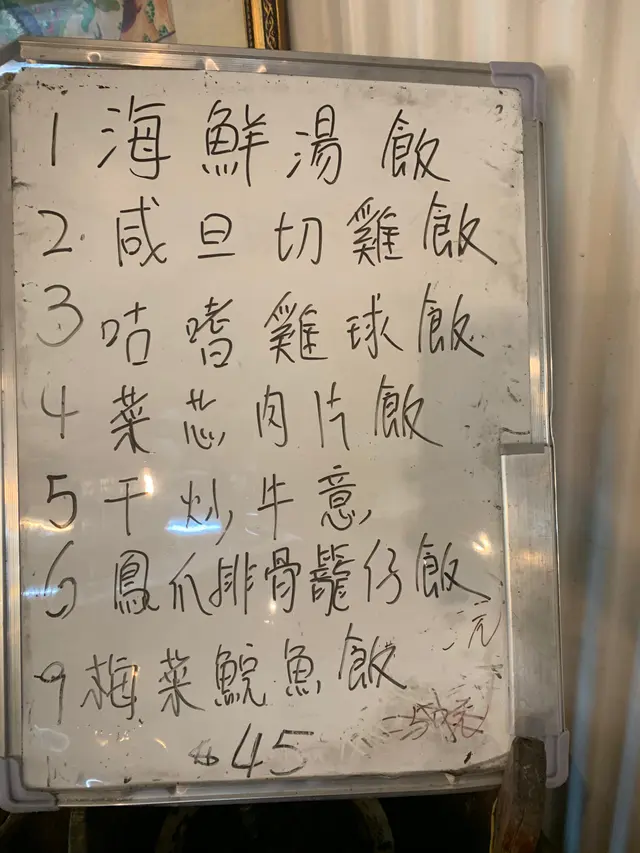 1 海鮮湯飯
2. 咸旦切雞飯
3 咕嗜雞球飯
4 菜芯肉片飯
5 干炒牛意
6 鳳爪排骨籠仔飯
元
9 梅菜鯇魚飯
$45